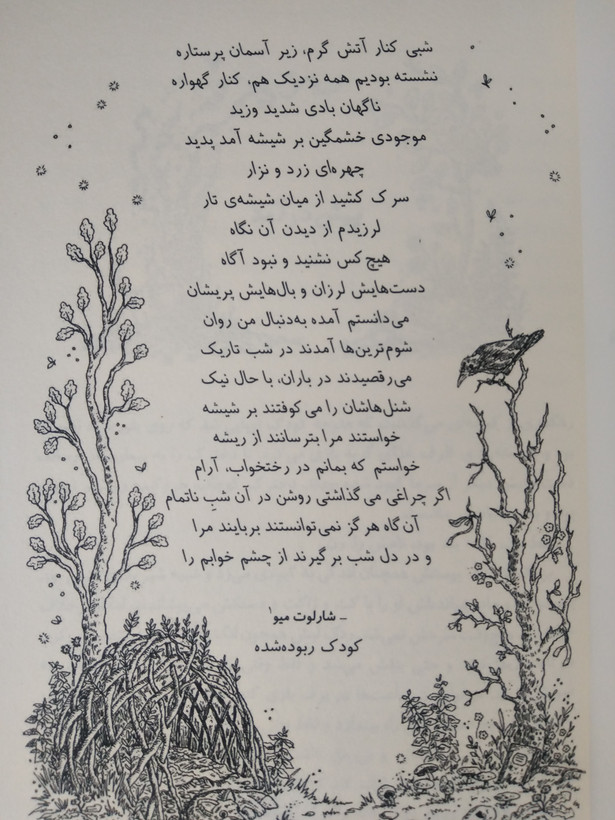 شبی کنار آتش گرم، زیر آسمان پرستاره
نشسته بودیم همه نزدیک هم، کنار گهواره
ناگهان بادی شدید وزید
موجودی خشمگین بر شیشه آمد پدید
چهره‌ای زرد و نزار
سرک کشید از میان شیشه‌ی تار
لرزیدم از دیدن آن نگاه
هیچ‌کس نشنید و نبود آگاه
دست‌هایش لرزان و بال‌هایش پریشان
می‌دانستم آمده به‌دنبال من روان
شوم‌ترین‌ها آمدند در شب تاریک
می‌رقصیدند در باران، با حال نیک
شنل‌هاشان را می‌کوفتند بر شیشه
خواستند مرا بترسانند از ریشه
خواستم که بمانم در رختخواب، آرام
اگر چراغی می‌گذاشتی روشن در آن شبِ ناتمام
آن گاه هرگز نمی‌توانستند بربایند مرا
و در دل شب برگیرند از چشم خوابم را
ـ شارلوت میو۱
کودک ربوده‌شده